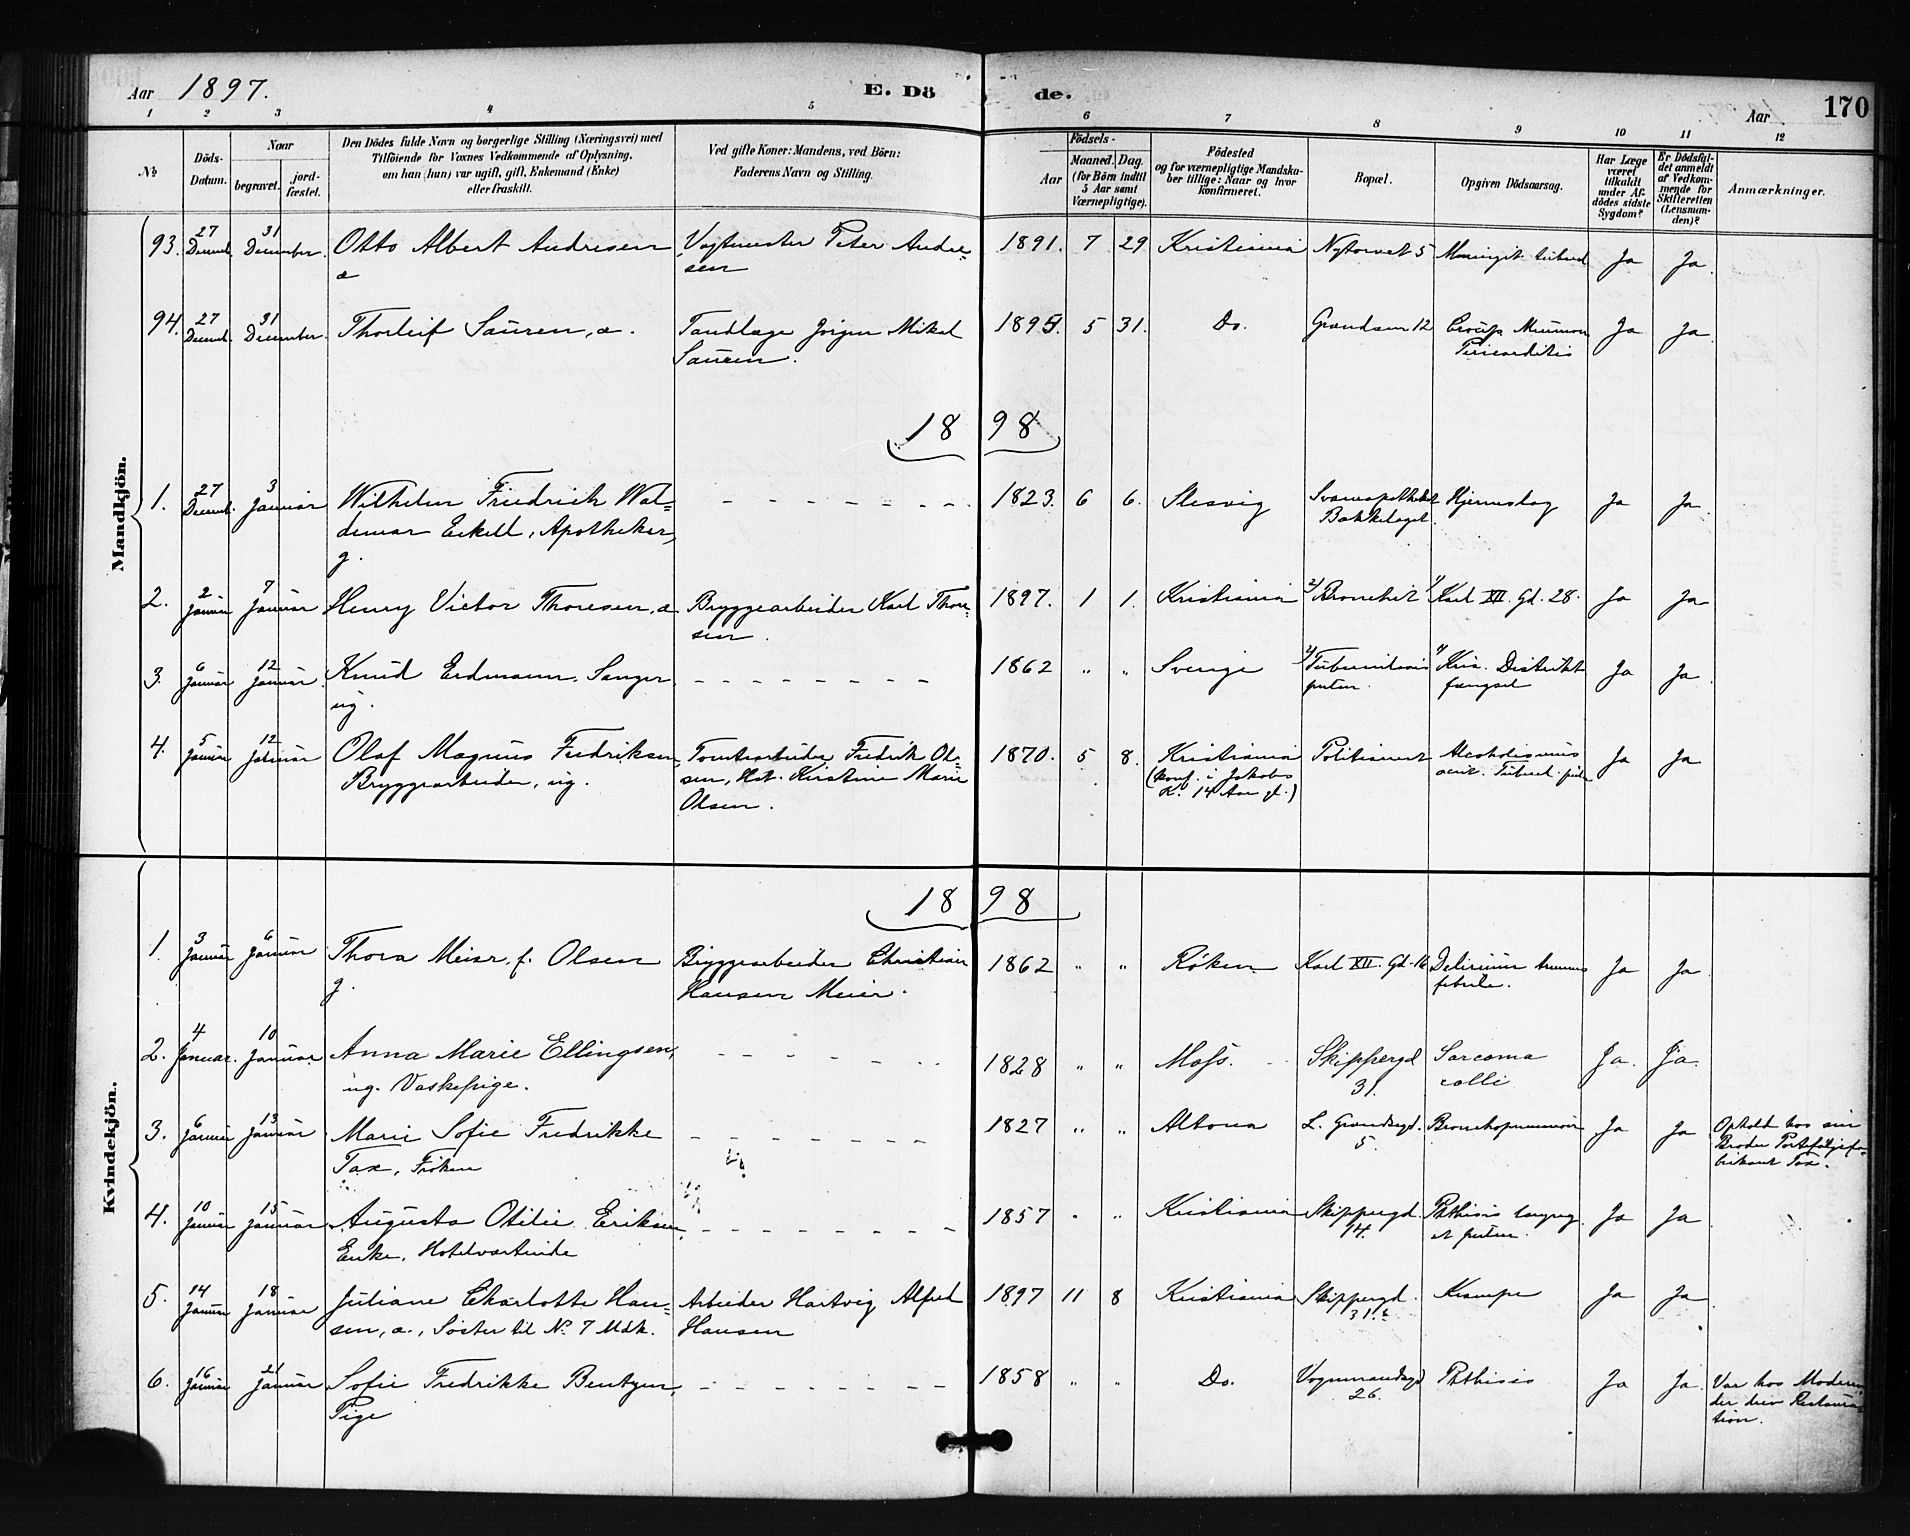 Aar 1897. E. Döde. Aar 170
1 2 3 4 5 6 7 8 9 10 11 12
№ Döds-Datum. Naar begravet. jord-fæstet.
Den Dödes fulde Navn og borgerlige Stilling (Næringsvei) med
Tilföiende for Voxnes Vedkommende af Oplysning,
om han (hun) var ugift, gift, Enkemand (Enke)
eller fraskilt.
Ved gifte Koner: Mandens, ved Börn:
Faderens Navn og Stilling.
Födsels-
Aar Maaned. Dag.
(for Börn indtil
5 Aar samt
Værnepligtige).
Födested
og for værnepligtige Mandska-
ber tillige: Naar og hvor
konfirmeret.
Bopæl.
Opgiven Dödsaarsag.
Har Læge
været
tilkaldt
under Af-
dödes sidste
Sygdom?
Er Dödsfal-
det anmeldt
af Vedkom-
mende for
Skifteretten
(Lensman-
den)?
Anmærkninger.
Mandkjön.
93. 27 Decemb. 31 December. Otto Albert Andresen Vogtmester Peter Andre= 1891. 7 29 Kristiania Nytorvet 5 Meningit tuberl Ja Ja.
a sen
94. 27 Decemb. 31 December. Thorleif Sauren, a. Tandlæge Jörgen Mikal 1895. 5 31. Do. Grændsen 12 Croup Ja Ja
Sauren. Pericarditis
1898
1. 27 Decemb. 3 Januar Wilhelm Friedrich Wal= 1823. 6 6. Slesvig Svaneapotheket Hjerneslag Ja Ja.
demar Eckell, Apotheker, Bækkelaget.
g.
2. 2 Januar 7 Januar Henry Victor Thoresen, a Bryggearbeider Karl Thore= 1897. 1 1. Kristiania 2) Bronchit 1) Karl XII. Gd. 28. Ja Ja
sen.
3. 6 Januar 12 Januar. Knud Erdmann. Sanger 1862 " " Sverige 2) Tuberculosis 1) Kria. Distrikts Ja Ja.
ug. pulm. fængsel
4. 5 Januar 12 Januar Olaf Magnus Fredriksen Tomtearbeider Fredrik Ol= 1870. 5 8. Kristiania Politiammet Alcoholismus Ja Ja
Bryggearbeider, ug. sen, Hst. Kirstine Marie (konf. i Jakobs acut. Tuberl. pulm
Olsen. K. 14 Aar gl.)
Kvindekjön.
1898
1. 3 Januar 6 Januar Thora Meier, f. Olsen Bryggearbeider Christian 1862 " " Röken Karl XII. Gd. 16 Delirium tremens Ja Ja.
g. Hansen Meier. febrile.
2. 4 Januar. 10 Januar Anna Marie Ellingsen, 1828 " " Moss. Skippergd Sarcoma Ja. Ja.
ug. Vaskepige. 31. colli
3. 6 Januar 13 Januar Marie Sofie Fredrikke 1827 " " Altona L. Grændsegd. Bronchopneumoni Ja Ja Ophold hos sin
Tax, Fröken 5. Broder Portefölgefa=
brikant Tax.
4. 10 Januar 15 Januar Augusta Otilie Eriksen, 1857 " " Kristiania Skippergd. Phthisis laryng. Ja Ja
Enke, Hotelværtinde 14. et pulm.
5. 14 Januar 18 Januar Juliane Charlotte Han= Arbeider Hartvig Alfred 1897 11 8 Kristiania Skippergd. Krampe Ja Ja
sen, a., Söster til No 7 Mdk. Hansen 31.
6. 16 Januar 21 Januar Sofie Fredrikke Bentzen, 1858 " " Do. Vognmandsgd Phthisis Ja Ja. Var hos Moderen
Pige 26. der drev Restaura=
tion.